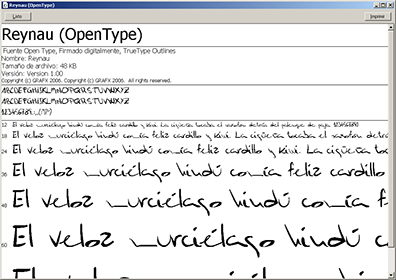 Reynau (OpenType)
Listo Imprimir
Reynau (OpenType)
Fuente Open Type, Firmado digitalmente, TrueType Outlines
Nombre: Reynau
Tamaño de archivo: 48 KB
Versión: Version 1.00
Copyright (c) GRAFX 2006. Copyright (c) GRAFX 2006. All rights reserved.
ABCDEFGHIJKLMNOPQRSTUVWXYZ
ABCDEFGHIJKLMNOPQRSTUVWXYZ
1234567890.:,;
12 El veloz murciélago hindú comía feliz cardillo y kiwi. La cigüeña tocaba el saxofón detrás del palenque de paja. 1234567890
18 El veloz murciélago hindú comía feliz cardillo y kiwi. La cigüeña tocaba el saxofón detrás
24 El veloz murciélago hindú comía feliz cardillo y kiwi. La cigüeña toca
36 El veloz murciélago hindú comía feliz cardillo
48 El veloz murciélago hindú comía f
60 El veloz murciélago hindú c